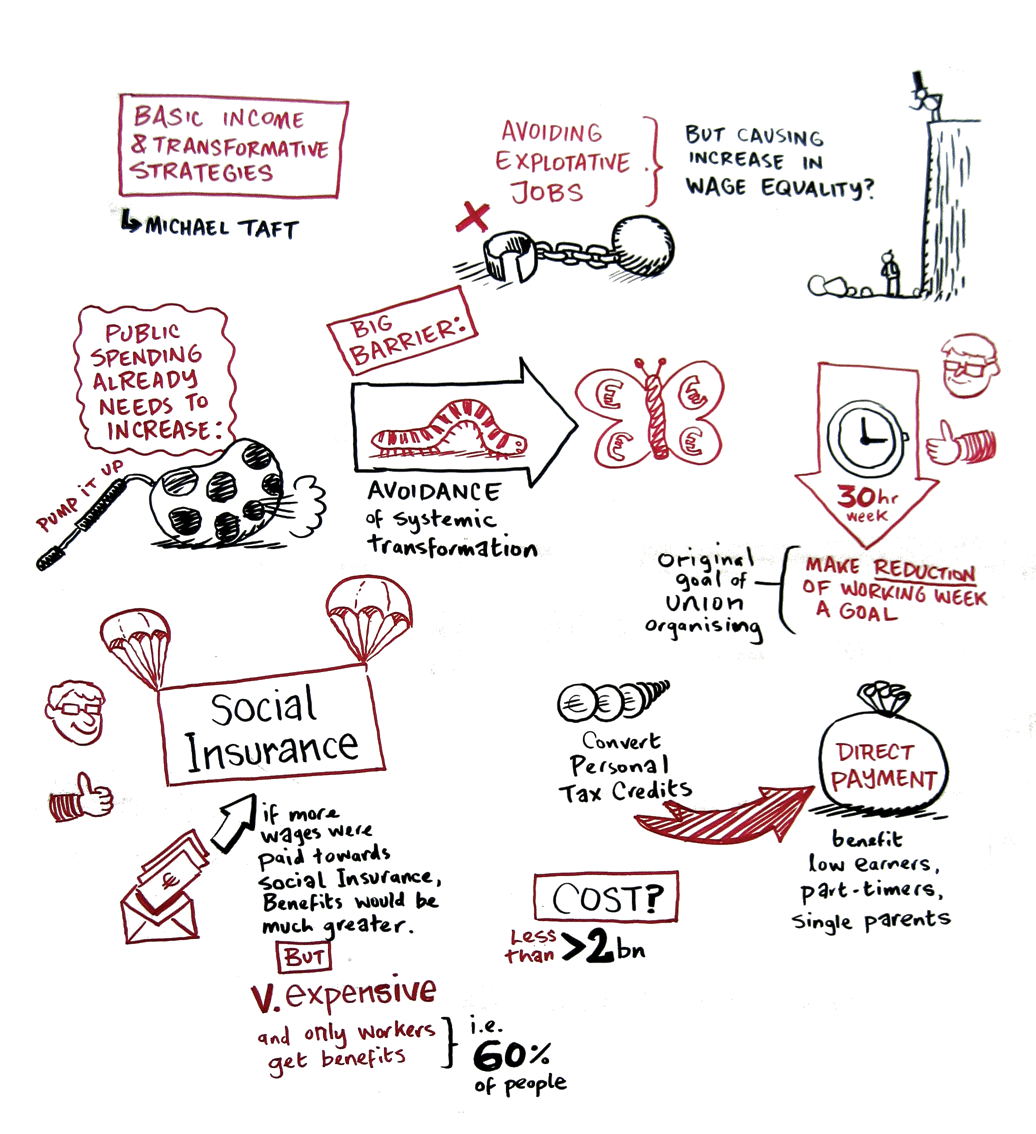 BASIC INCOME
& TRANSFORMATIVE
STRATEGIES
MICHAEL TAFT
AVOIDING
EXPLOTATIVE
JOBS
BUT CAUSING
INCREASE IN
WAGE EQUALITY?
PUBLIC
SPENDING
ALREADY
NEEDS TO
INCREASE:
PUMP IT UP
BIG
BARRIER:
AVOIDANCE
of systemic
transformation
€ €
€ €
30hr
week
Original
goal of
Union
organising
MAKE REDUCTION
OF WORKING WEEK
A GOAL
Social
Insurance
€
if more
wages were
paid towards
Social Insurance,
Benefits would be
much greater.
BUT
V. expensive
and only workers
get benefits
i.e.
60%
of people
€
Convert
Personal
Tax Credits
DIRECT
PAYMENT
benefit
low earners,
part-timers,
single parents
COST?
Less
than >2bn